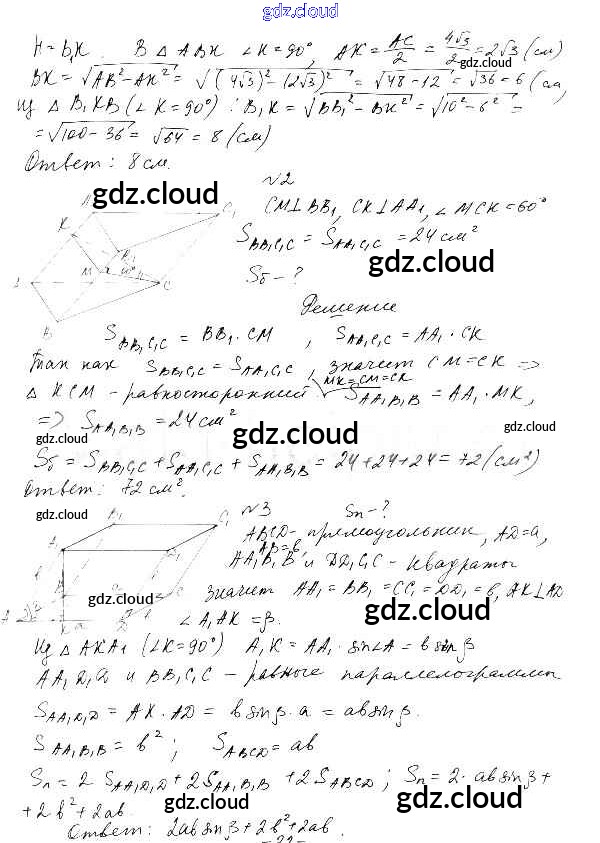 gdz.cloud
gdz.cloud
H = B₁K. В △ ABK ∠K = 90°, AK = AC/2 = 4√3/2 = 2√3 (см)
BK = √(AB² - AK²) = √((4√3)² - (2√3)²) = √(48 - 12) = √36 = 6 (см,
из △ B₁KB (∠K = 90°): B₁K = √(BB₁² - BK²) = √(10² - 6²) =
= √(100 - 36) = √64 = 8 (см)
Ответ: 8 см.
gdz.cloud
№2
CM⊥BB₁, CK⊥AA₁, ∠MCK = 60°
S_BB₁C₁C = S_AA₁C₁C = 24 см²
gdz.cloud
Sб - ?
K C₁ B₁ M 60° C B
Решение
S_BB₁C₁C = BB₁ · CM, S_AA₁C₁C = AA₁ · CK
Так как S_BB₁C₁C = S_AA₁C₁C, значит CM = CK =>
△ KCM - равносторонний MK = CM = CK S_AA₁B₁B = AA₁ · MK,
=> S_AA₁B₁B = 24 см²
gdz.cloud
gdz.cloud
Sб = S_BB₁C₁C + S_AA₁C₁C + S_AA₁B₁B = 24 + 24 + 24 = 72 (см²)
Ответ: 72 см².
gdz.cloud
gdz.cloud
№3 Sп - ?
ABCD - прямоугольник, AD = a,
AB = b,
AA₁B₁B и DD₁C₁C - квадраты
gdz.cloud
значит AA₁ = BB₁ = CC₁ = DD₁ = b, AK⊥AD
gdz.cloud
∠A₁AK = β.
B₁ C₁ A₁ K
Из △ AKA₁ (∠K = 90°) A₁K = AA₁ · sin∠A = b sin β
AA₁D₁D и BB₁C₁C - равные параллелограммы
S_AA₁D₁D = AK · AD = b sin β · a = ab sin β.
S_AA₁B₁B = b²; S_ABCD = ab
gdz.cloud
Sп = 2 S_AA₁D₁D + 2 S_AA₁B₁B + 2 S_ABCD; Sп = 2 · ab sin β +
+ 2b² + 2ab.
gdz.cloud
gdz.cloud
Ответ: 2ab sin β + 2b² + 2ab.